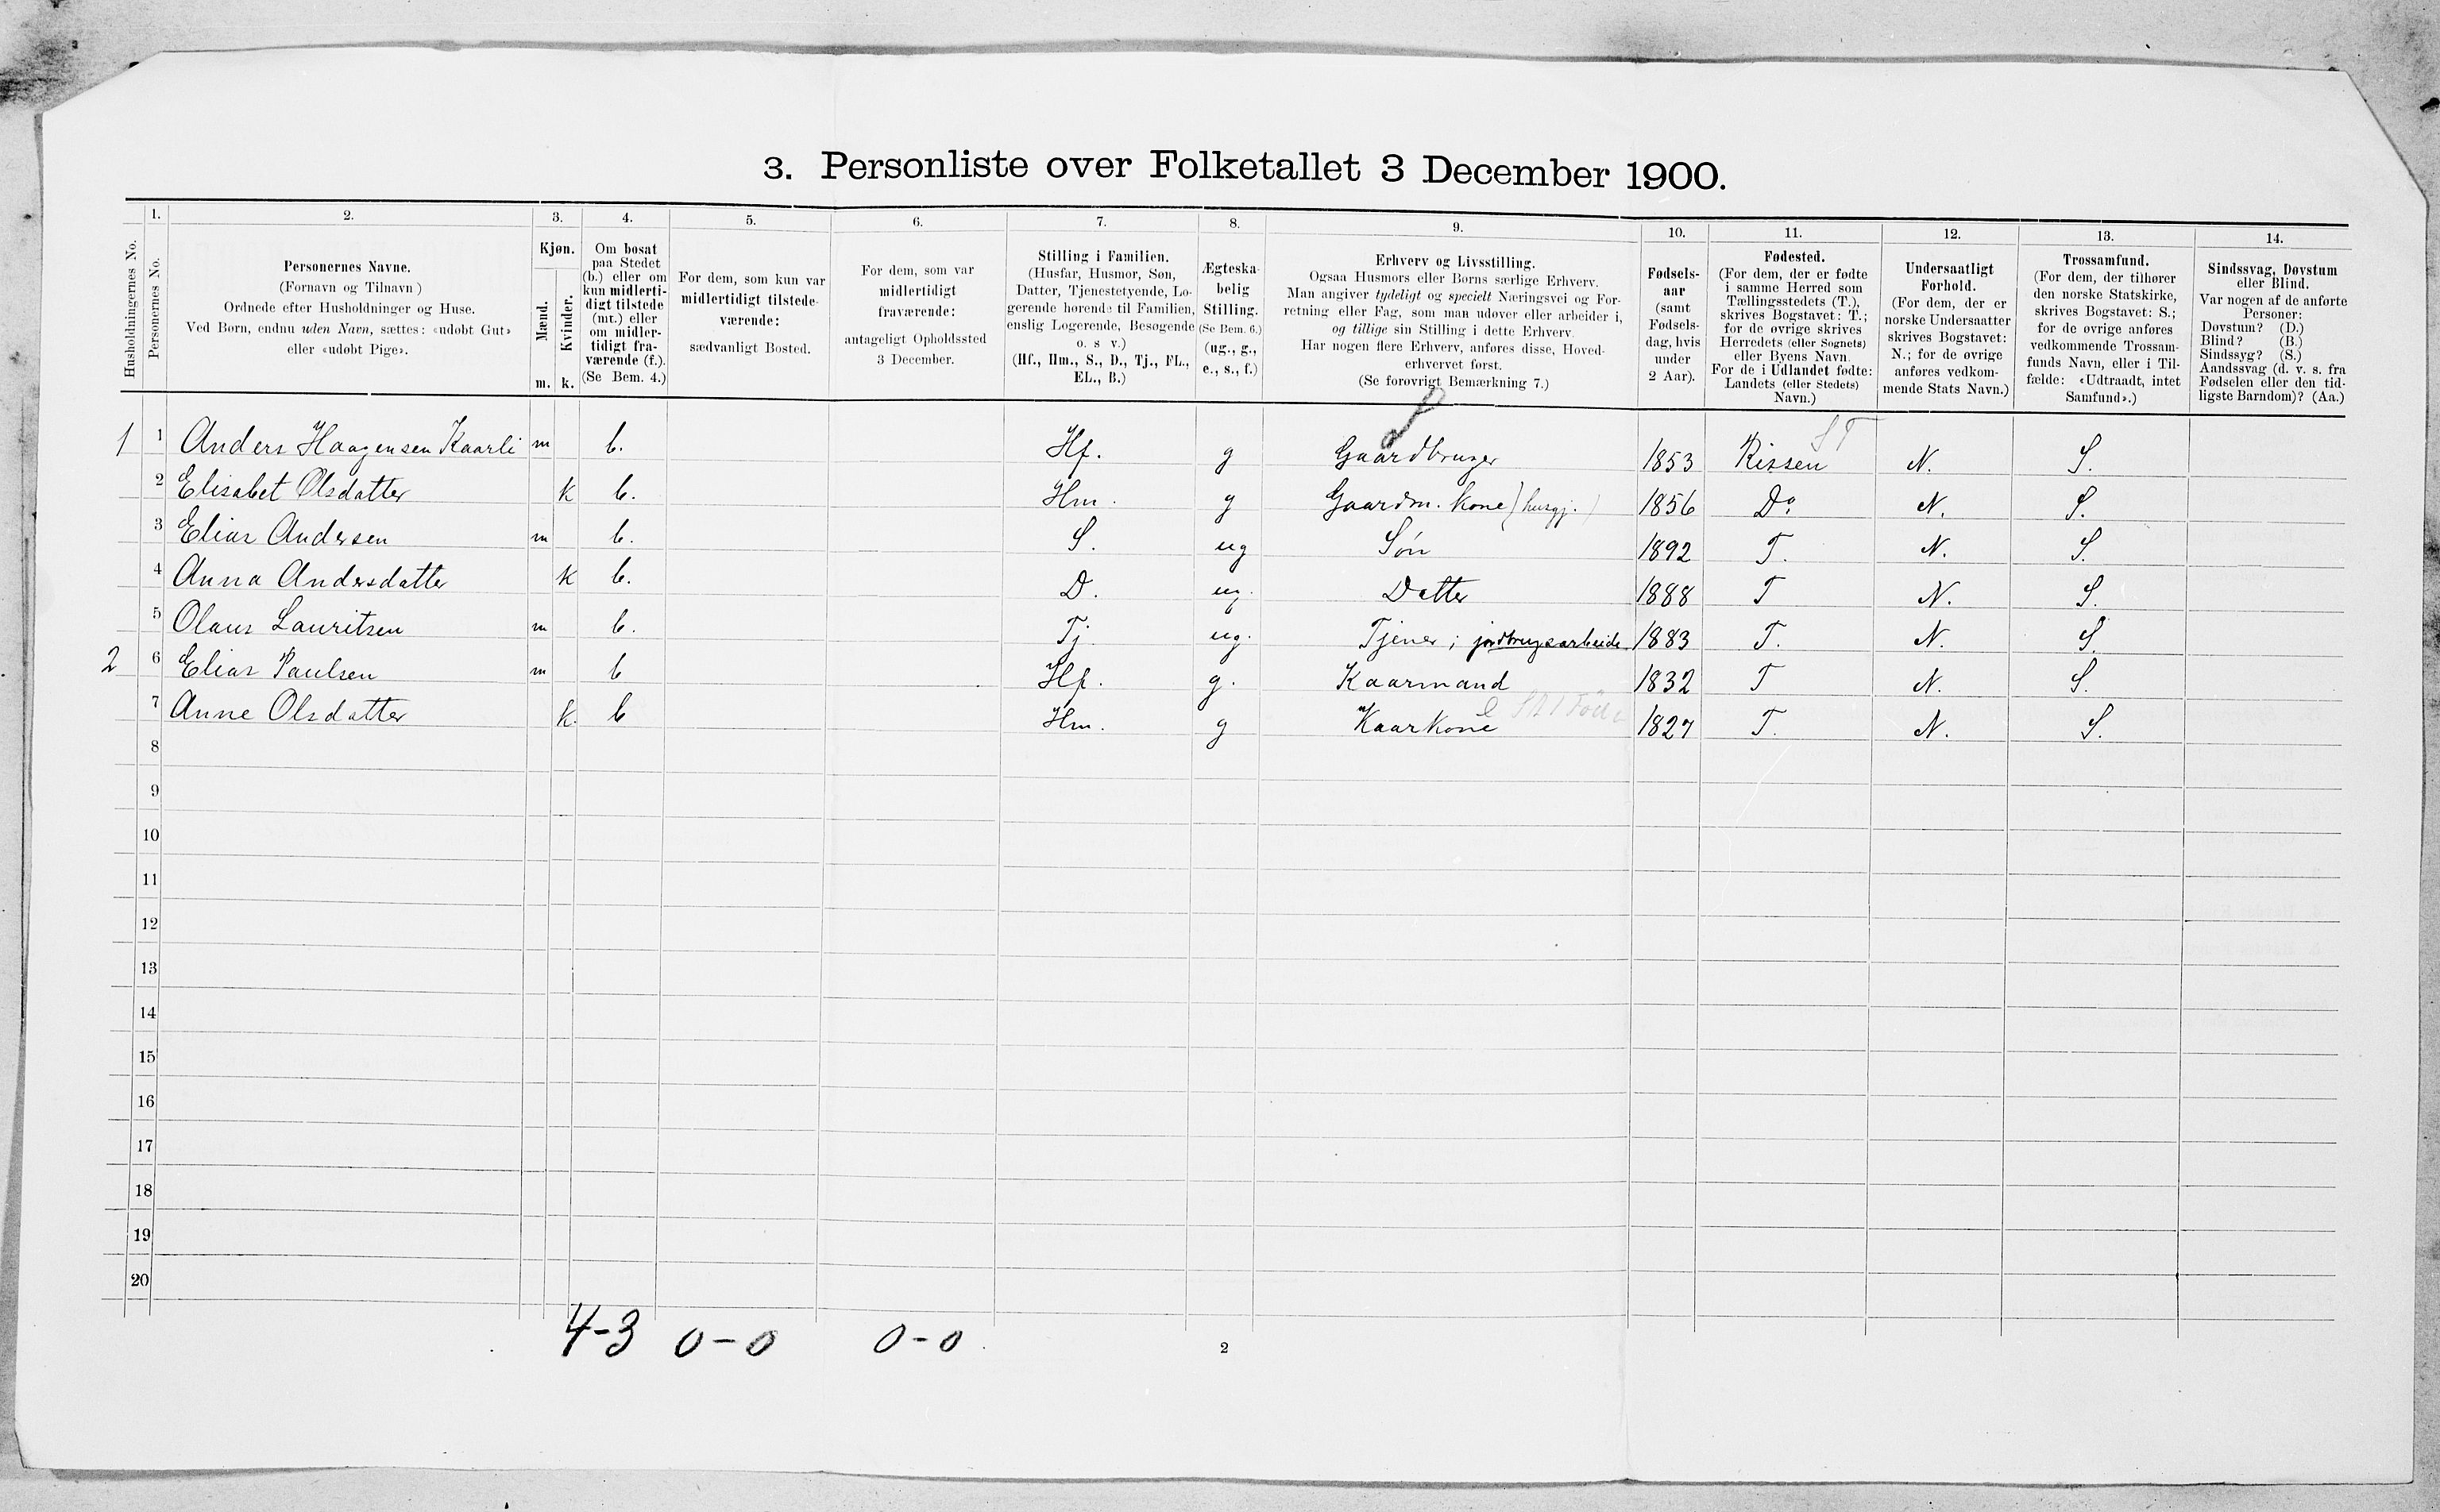 3. Personliste over Folketallet 3 December 1900.
1. 2. 3. 4. 5. 6. 7. 8. 9. 10. 11. 12. 13. 14.
Husholdningernes No.
Personernes No.
Personernes Navne.
(Fornavn og Tilnavn)
Ordnede efter Husholdninger og Huse.
Ved Børn, endnu uden Navn, sættes: «udøbt Gut»
eller «udøbt Pige».
Kjøn.
Mænd.
Kvinder.
m. k.
Om bosat
paa Stedet
(b.) eller om
kun midlerti-
digt tilstede
(mt.) eller
om midler-
tidigt fra-
værende (f.).
(Se Bem. 4.)
For dem, som kun var
midlertidigt tilstede-
værende:
sædvanligt Bosted.
For dem, som var
midlertidigt
fraværende:
antageligt Opholdssted
3 December.
Stilling i Familien.
(Husfar, Husmor, Søn,
Datter, Tjenestetyende, Lo-
gerende hørende til Familien,
enslig Logerende, Besøgende
o. s v.)
(Hf., Hm., S., D., Tj., FL.,
EL., B.)
Ægteska-
belig
Stilling.
(Se Bem. 6.)
(ug., g.,
e., s., f.)
Erhverv og Livsstilling.
Ogsaa Husmors eller Børns særlige Erhverv.
Man angiver tydeligt og specielt Næringsvei og For-
retning eller Fag, som man udøver eller arbeider i,
og tillige sin Stilling i dette Erhverv.
Har nogen flere Erhverv, anføres disse, Hoved-
erhvervet først.
(Se forøvrigt Bemærkning 7.)
Fødsels-
aar
(samt
Fødsels-
dag, hvis
under
2 Aar).
Fødested.
(For dem, der er fødte
i samme Herred som
Tællingsstedets (T.),
skrives Bogstavet: T.;
for de øvrige skrives
Herredets (eller Sognets)
eller Byens Navn.
For de i Udlandet fødte:
Landets (eller Stedets)
Navn.)
Undersaatligt
Forhold.
(For dem, der er
norske Undersaatter
skrives Bogstavet:
N.; for de øvrige
anføres vedkom-
mende Stats Navn.)
Trossamfund.
(For dem, der tilhører
den norske Statskirke,
skrives Bogstavet: S.;
for de øvrige anføres
vedkommende Trossam-
funds Navn, eller i Til-
fælde: «Udtraadt, intet
Samfund».)
Sindssvag, Døvstum
eller Blind.
Var nogen af de anførte
Personer:
Døvstum? (D.)
Blind? (B.)
Sindssyg? (S.)
Aandssvag (d. v. s. fra
Fødselen eller den tid-
ligste Barndom)? (Aa.)
1 1 Anders Haagensen Kaarli m b. Hf. g Gaardbruger 1853 Rissen ST N. S.
2 Elisabet Olsdatter k b. Hm. g Gaardm. kone (husgj.) 1856 Do. N. S.
3 Elias Andersen m b. S. ug Søn 1892 T. N. S.
4 Anna Andersdatter k b. D. ug. Datter 1888 T N. S.
5 Olaus Lauritsen m b. Tj ug. Tjener; jordbrugsarbeide 1883 T. N. S.
2 6 Elias Paulsen m b Hf. g. Kaarmand 1832 T N. S.
7 Anne Olsdatter k. b Hm. g Kaarkone 1827 T. N. S.
8
9
10
11
12
13
14
15
16
17
18
19
20
4-3 0-0 0-0
2